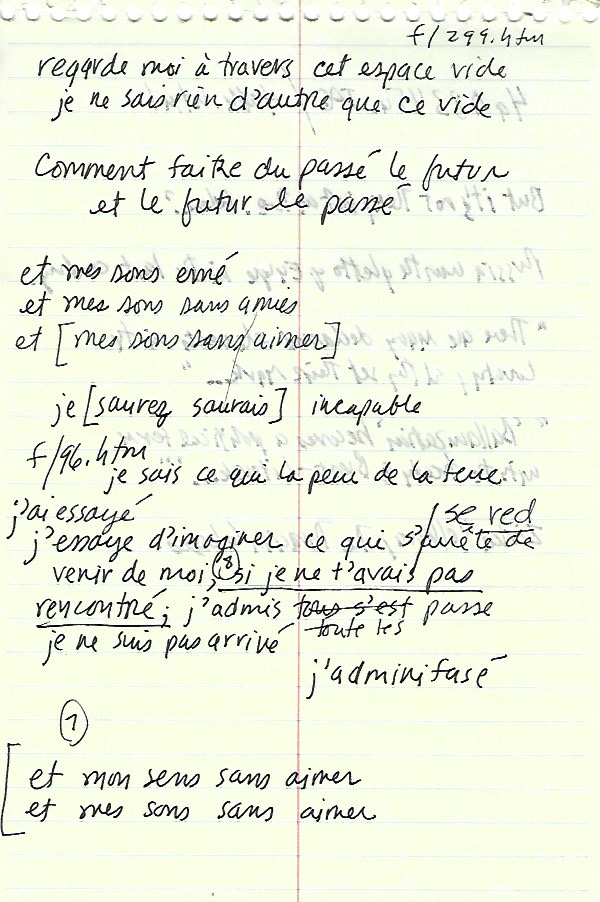 f/299.htm
regarde moi à travers cet espace vide
je ne sais rien d'autre que ce vide
Comment faire du passé le futur
et le futur le passé
et mes sons emé
et mes sons sans amies
et [mes sons sans aimer]
je [saurez saurais] incapable
f/96.htm
je sais ce qui la peur de la terre
j'ai essayé
se red
j'essaye d'imaginer ce qui s'arrête de
venir de moi, 8 si je ne t'avais pas
rencontré; j'admis tous s'est passe
toute les
je ne suis pas arrivé
j'adminifasé
1
et mon sens sans aimer
et mes sons sans aimer